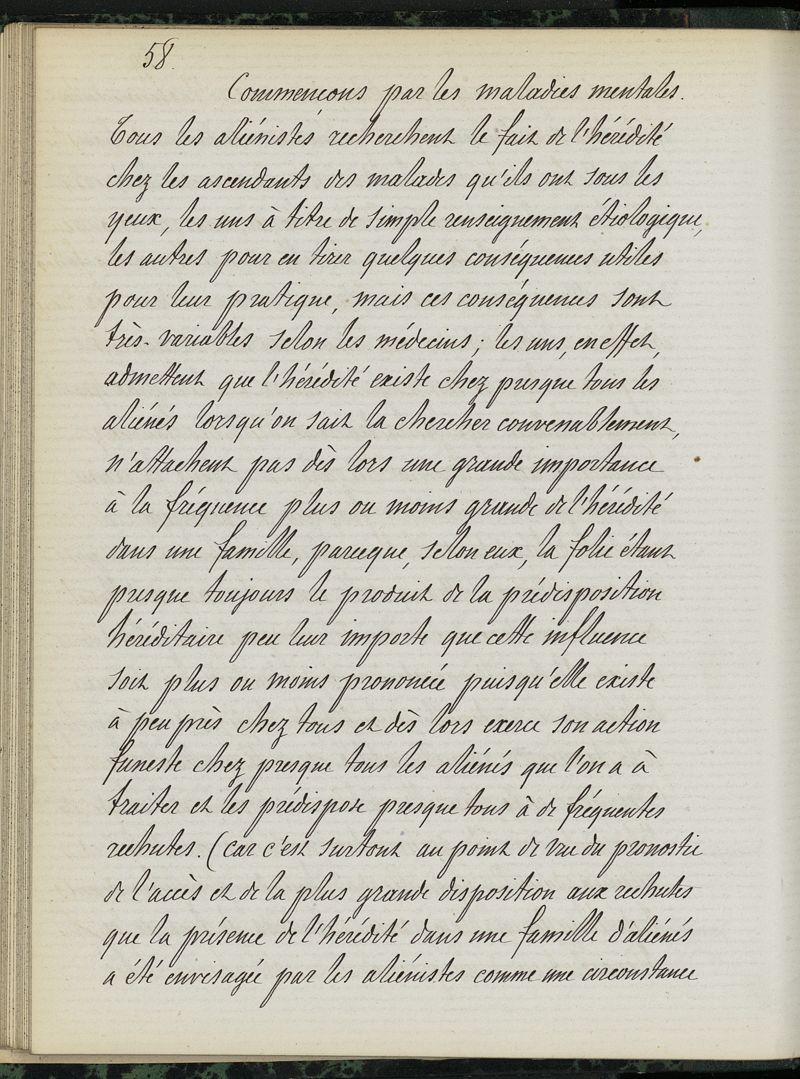 58.
Commencons par les maladies mentales.
Tous les aliénistes recherchent le fait de l'hérédité
chez les ascendants des malades qu'ils ont sous les
yeux, les uns à titre de simple renseignement étiologique,
les autres pour en tirer quelques conséquences utiles
pour leur pratique, mais ces conséquences sont
très-variables selon les médecins; les uns, en effet,
admettent que l'hérédité existe chez presque tous les
aliénés lorsqu'on sait la chercher convenablement,
n'attachent pas dès lors une grande importance
à la fréquence plus ou moins grande de l'hérédité
dans une famille, parceque, selon eux, la folie étant
presque toujours le produit de la prédisposition
héréditaire peu leur importe que cette influence
soit plus ou moins prononcée puisqu'elle existe
à peu près chez tous et dès lors exerce son action
funeste chez presque tous les aliénés que l'on a à
traiter et les prédispose presque tous à de fréquentes
rechutes. (car c'est surtout au point de vue du pronostic
de l'accès et de la plus grande disposition aux rechutes
que la présence de l'hérédité dans une famille d'aliénés
a été envisagée par les aliénistes comme une circonstance